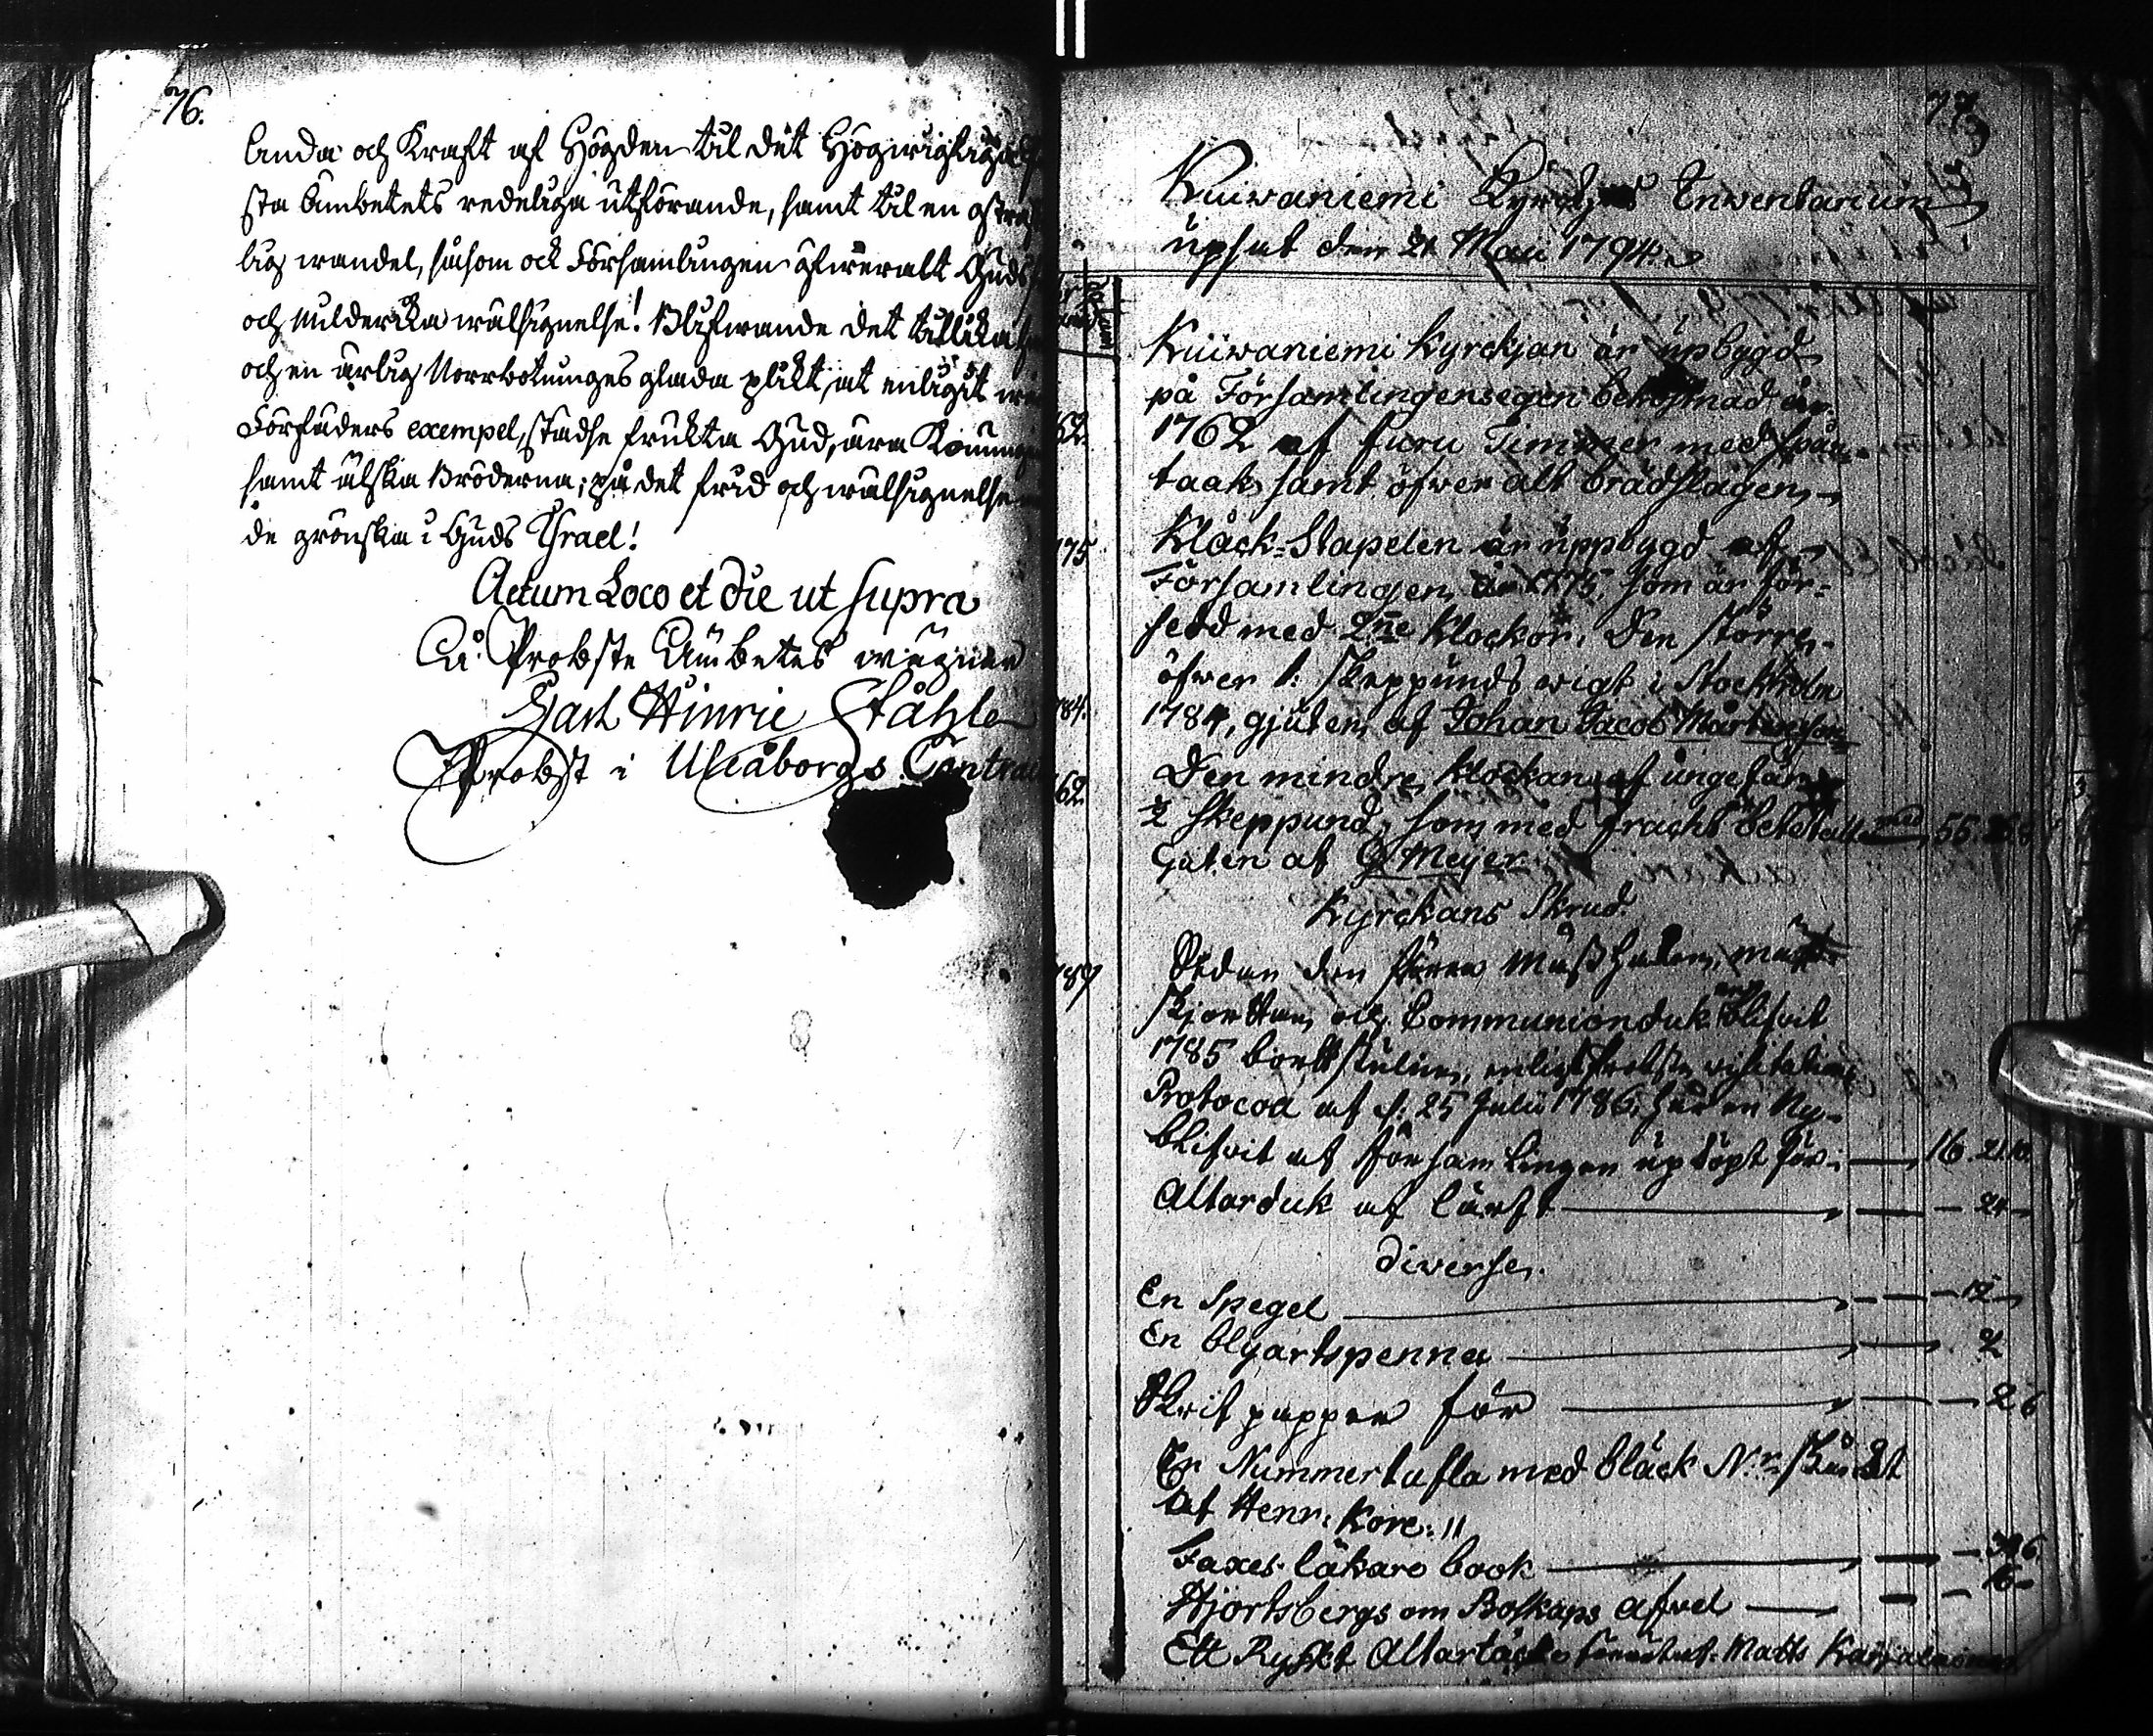 76.
Anda och Kraft af Högden til det Högwigtiga
sta Ämbetets redeliga utförande, samt til en ostraf
lig wandel, såsom ock Församlingen öfweralt Guds
och milderika wälsignelse! Blifwande det tillika
och en ärlig Norrbotninges glada plikt, at enligit
Förfäders exempel, städse frukta Gud, ära Konungen
samt älska Bröderna; på det frid och wälsignelse
de grönska i Guds Israel!
Actum Loco et die ut supra
På Probste Ämbetes wägnar
Carl Hinric Ståhle
Probst i Uleåborgs Contract
77
Kuiwaniemi Kyrckjos Inwentarium
upsat den 21 Maii 1794.
Kuiwaniemi Kyrckjan är upbygd
på Församlingens egen bekostnad år
62. 1762 af furu Timmer med spån
taak samt öfwer alt brädslagen
75. Klåck-Stapelen är uppbygd af
Församlingen år 1775, som är för-
sedd med 2ne klockor. Den större
öfwer 1: Skeppunds wigt i Stockholm
84. 1784, gjuten af Johan Jacob Mårtensson
62. Den mindre klockan af ungefär
½ Skeppund, som med fracht betaltes med 55.
Guten af G Meyer
Kyrckans Skrud.
89 Sedan den förra Messhaken, mäss
skjortan och Communionduk blifvit
1785 bortstulin, enligt Probste visitations
Protocoll af d: 25 Julii 1786, har en Ny
blifvit af församlingen upköpt för 16.
Altarduk af lärft 24
Diverse.
En Spegel 12
En blyartspenna 2
Skrif papper för 2 6
En Nummertafla med bläck Nr skänkt
af Henr. Kore: 11
Faxes läkare book
Hjortsbergs om Boskaps afvel 16
Ett Ryskt Altartäcke Matts Karjalainen